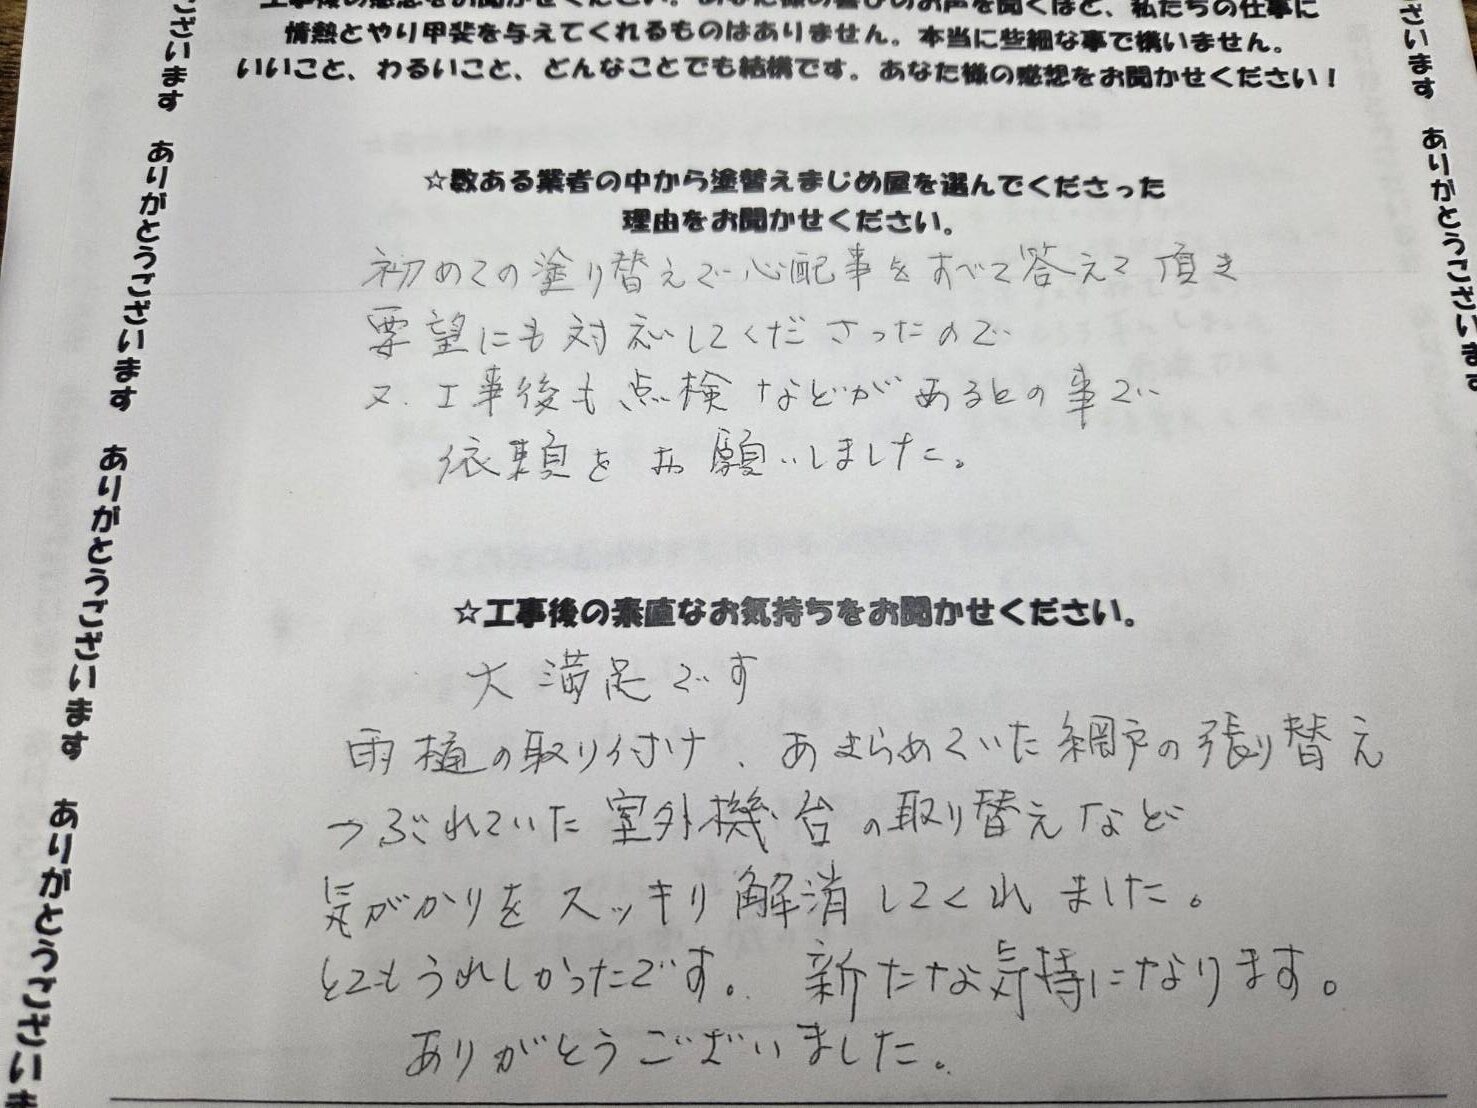 工事後の感想をお聞かせください。あなた様の喜びのお声を聞くほど、私たちの仕事に
情熱とやり甲斐を与えてくれるものはありません。本当に些細な事で構いません。
いいこと、わるいこと、どんなことでも結構です。あなた様の感想をお聞かせください!
☆数ある業者の中から塗替えまじめ屋を選んでくださった
理由をお聞かせください。
初めての塗り替えで心配事をすべて答えて頂き
要望にも対応してくださったので
又、工事後も点検などがあるとの事で
依頼をお願いしました。
☆工事後の素直なお気持ちをお聞かせください。
大満足です
雨樋の取り付け、あきらめていた網戸の張り替え
つぶれていた室外機台の取り替えなど
気がかりをスッキリ解消してくれました。
とてもうれしかったです。新たな気持になります。
ありがとうございました。
ございます
ありがとうございます
ありがとうございます
ありがとうございま
ございます
ありがとうございます